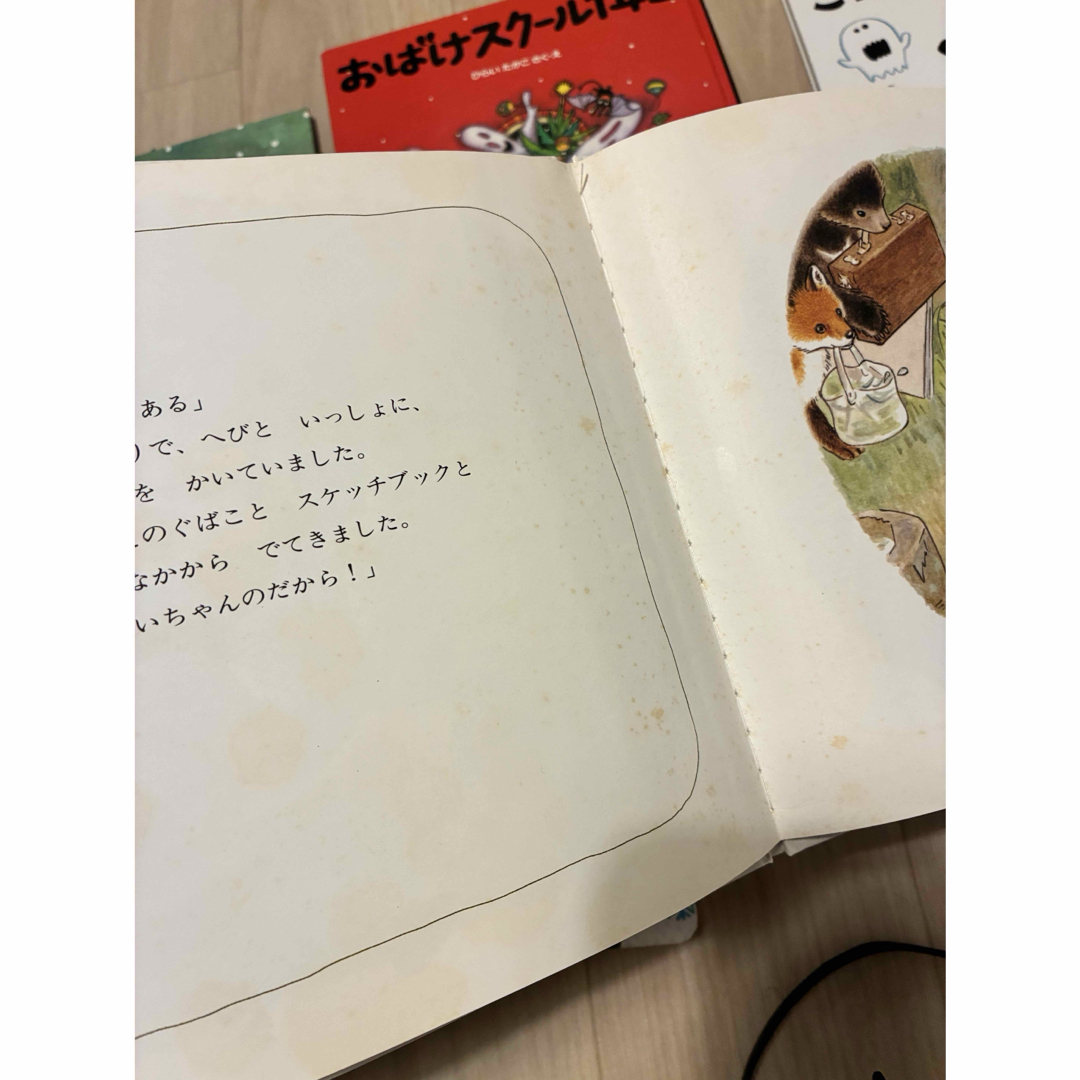 おばけスクール1年
ひらい たかこ さく・え
ある」
で、へびと いっしょに、
を かいていました。
のぐばこと スケッチブックと
なかから でてきました。
いちゃんのだから！」